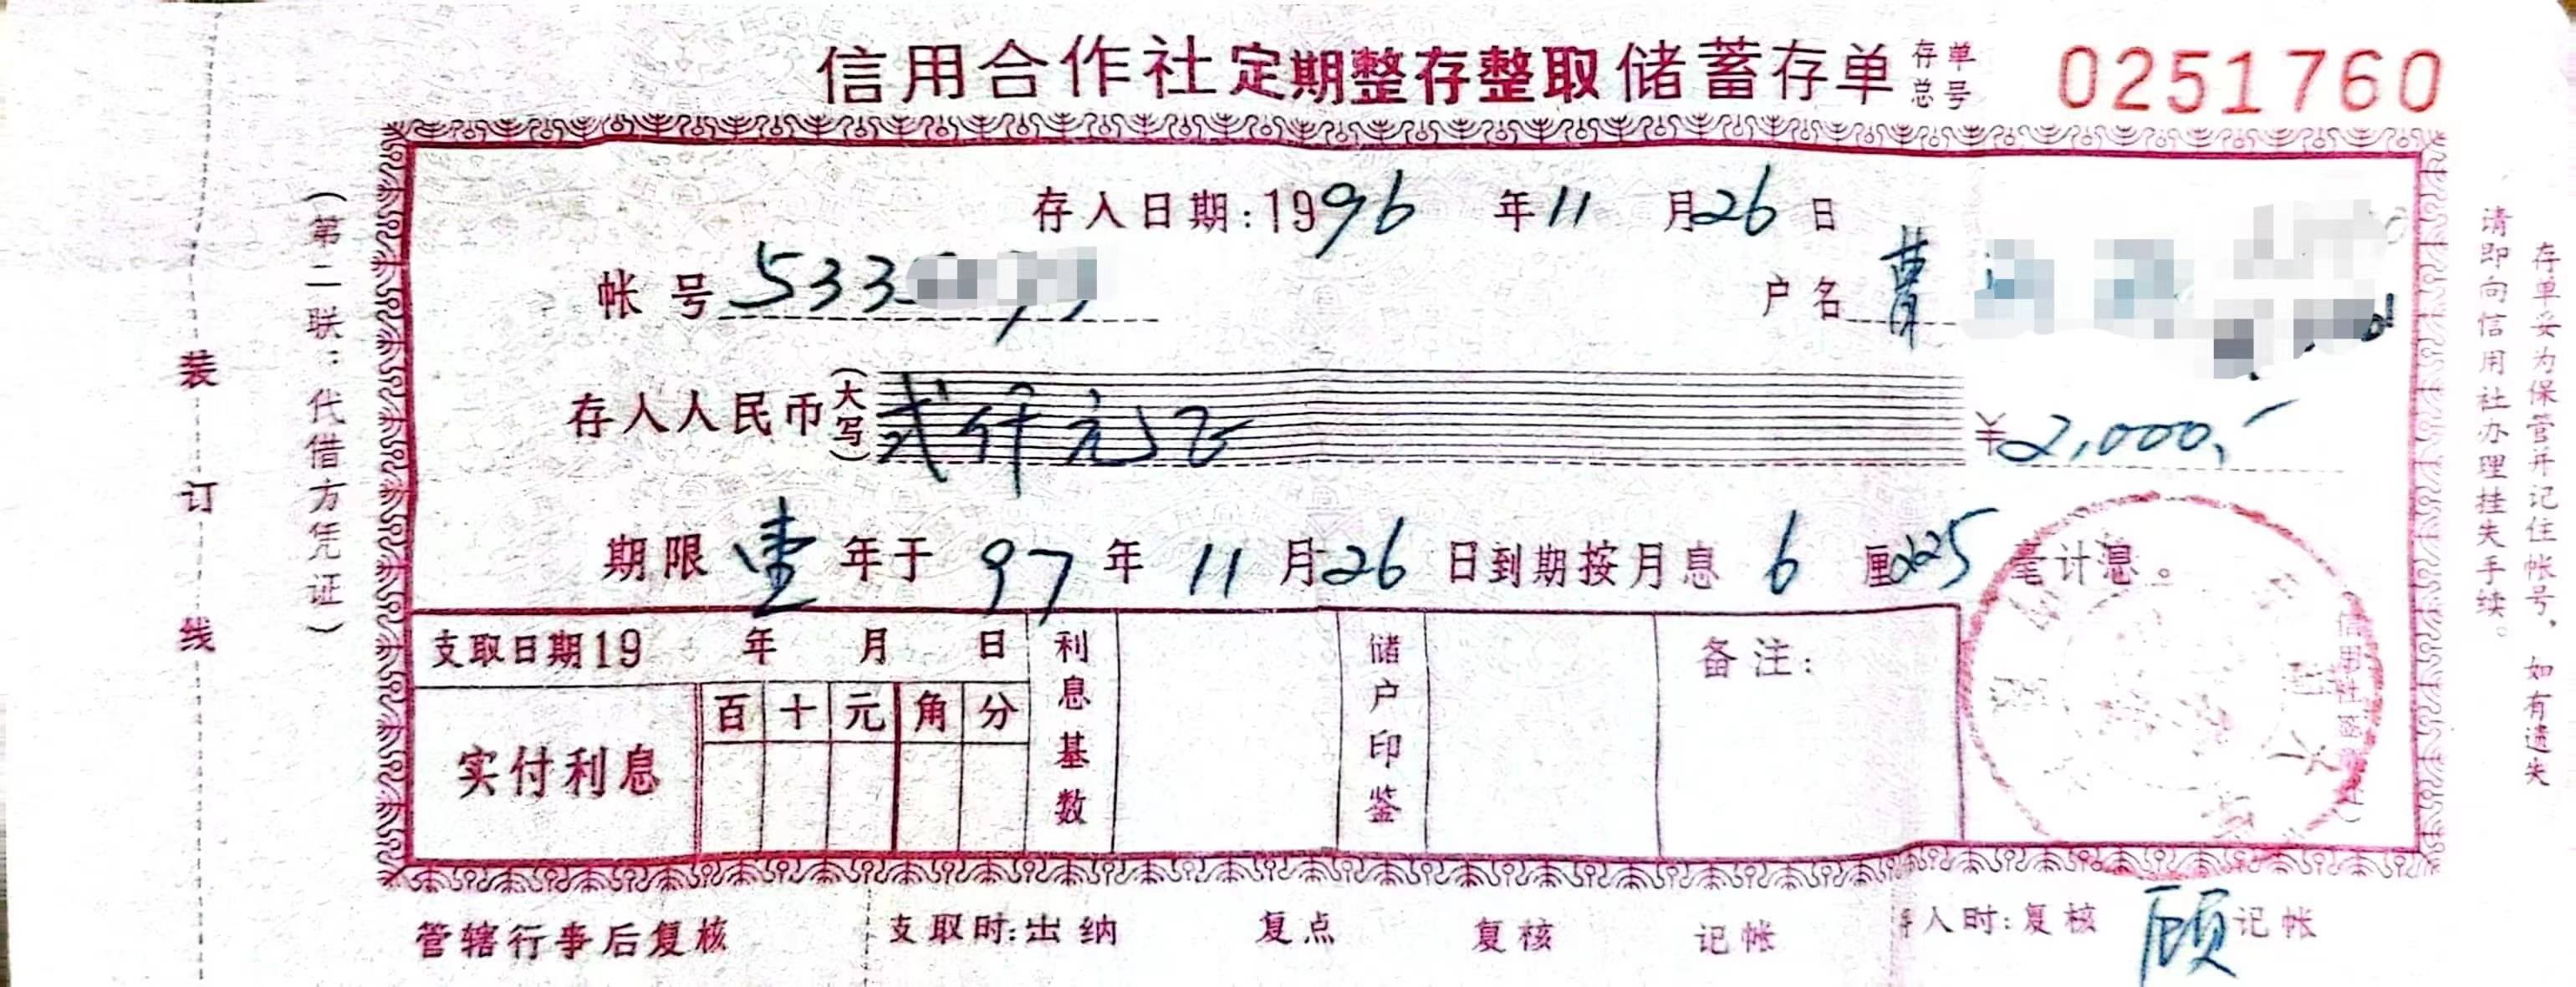 信用合作社定期整存整取储蓄存单 存单总号 0251760
存入日期:1996年11月26日
帐号 533
户名 曹
存入人民币(大写)贰仟元正 ¥2,000.-
期限 壹 年于 97 年 11 月 26 日到期按月息 6 厘225毫计息。
支取日期19 年 月 日
利息基数
储户印鉴
备注:
百 十 元 角 分
实付利息
管辖行事后复核 支取时:出纳 复点 复核 记帐 存入时:复核 顾 记帐
(第二联:代借方凭证)
装订线
存单妥为保管并记住帐号,如有遗失
请即向信用社办理挂失手续。